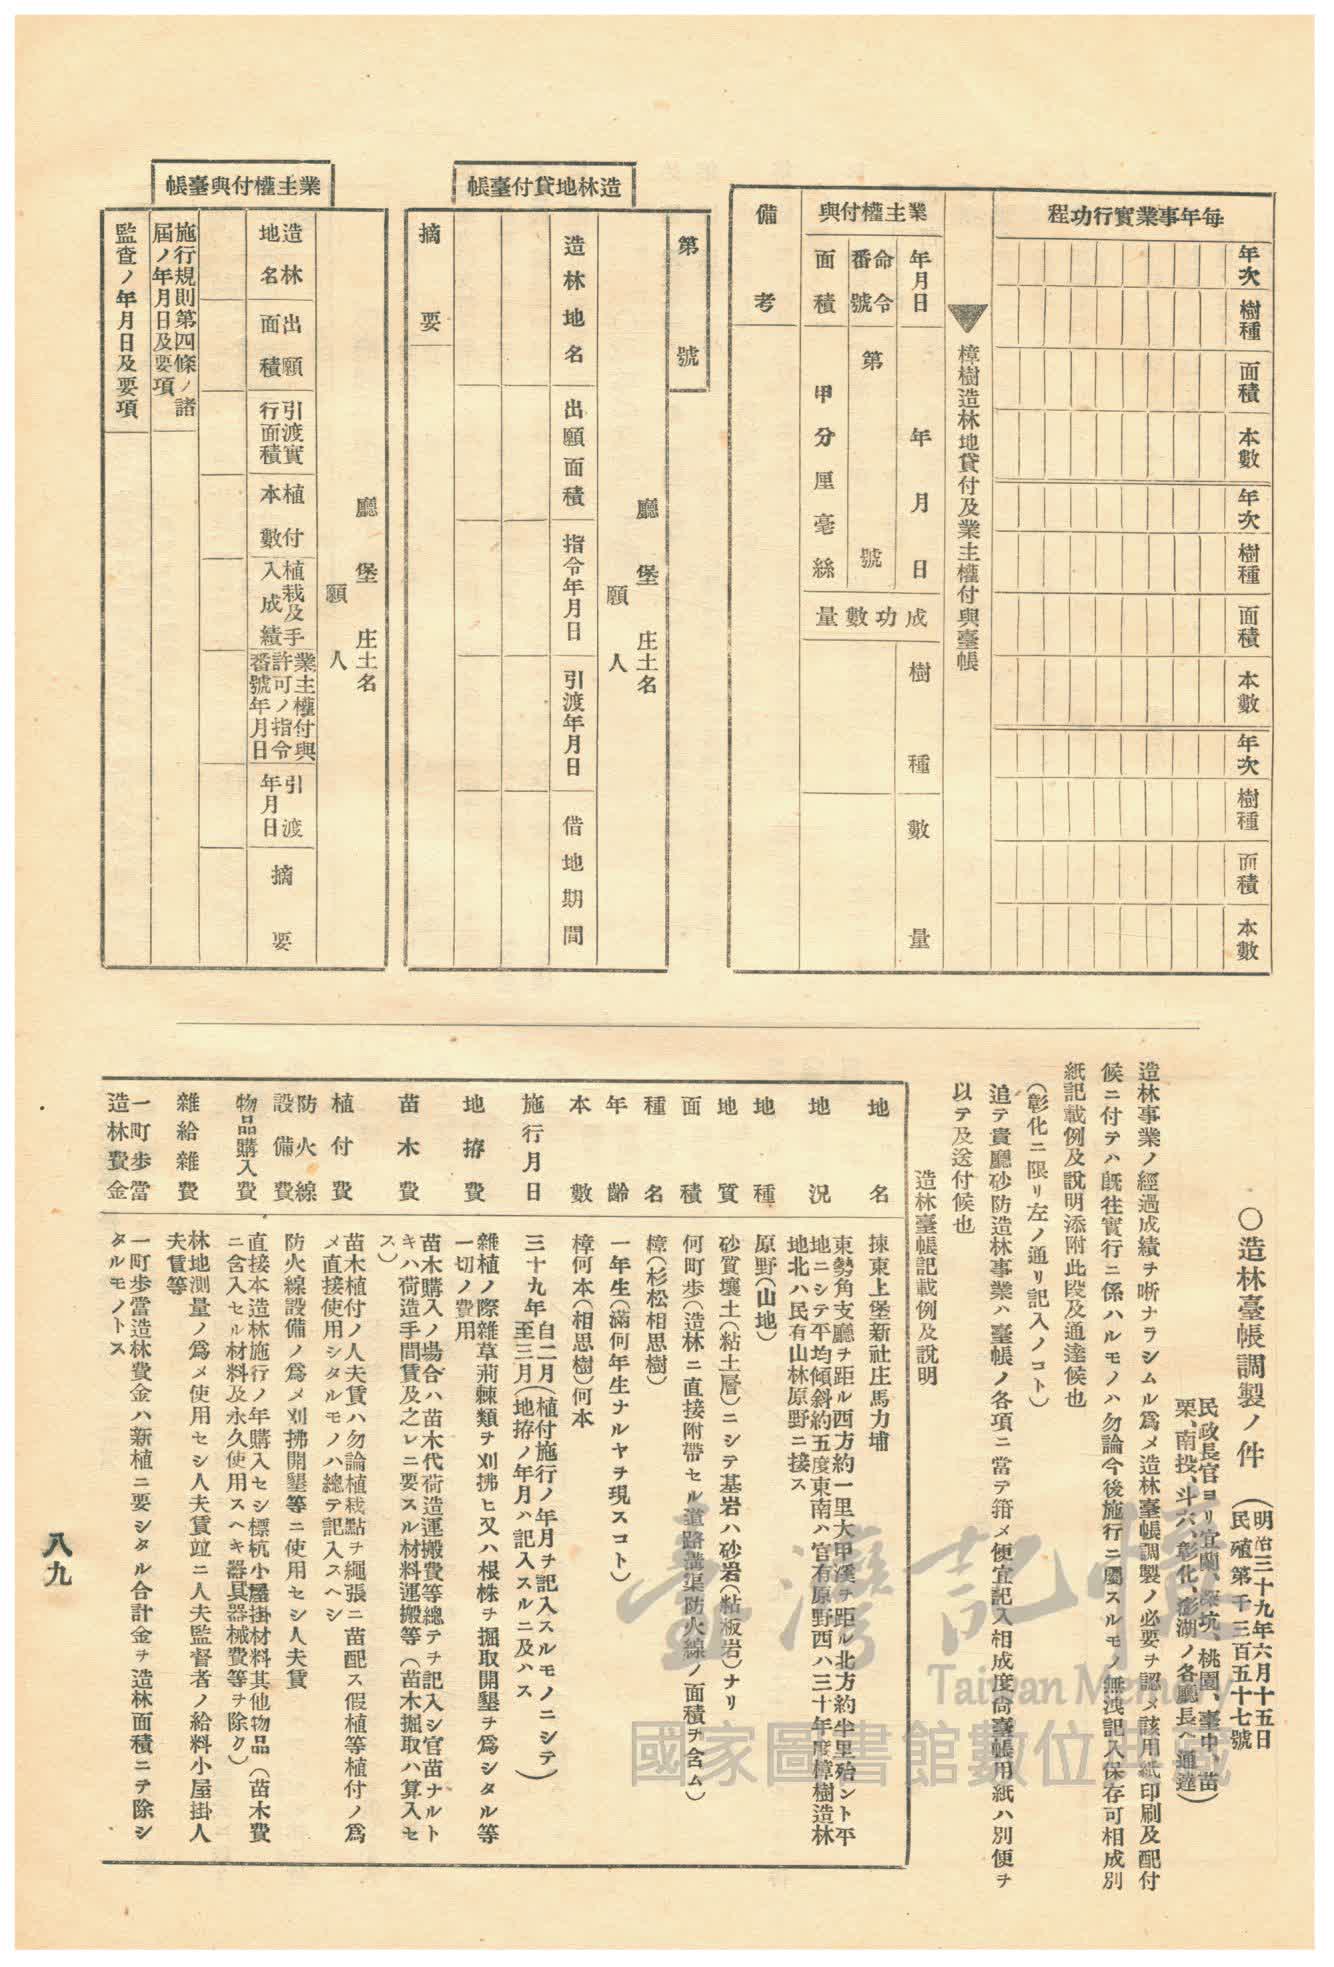 每年事業實行功程
年次
樹種
面積
本數
年次
樹種
面積
本數
年次
樹種
面積
本數
▼樟樹造林地貸付及業主權付與臺帳
業主權付與
年月日
年月日
命令番號
第號
面積
甲分厘毫絲
成功數量
樹種
數量
備考
造林地貸付臺帳
第號
廳堡庄土名
願人
造林地名
出願面積
指令年月日
引渡年月日
借地期間
摘要
業主權付與臺帳
廳堡庄土名
願人
造林地名
出願面積
引渡實行面積
植付本數
植栽及手入成績
業主權付與許可ノ指令番號年月日
引渡年月日
摘要
施行規則第四條ノ諸屆ノ年月日及要項
監查ノ年月日及要項
○造林臺帳調製ノ件
(明治三十九年六月十五日
民殖第千三百五十七號
民政長官ヨリ宜蘭、深坑、桃園、臺中、苗
栗、南投、斗六、彰化、澎湖ノ各廳長ヘ通達)
造林事業ノ經過成績ヲ晰ナラシムル爲メ造林臺帳調製ノ必要ヲ認メ該用紙印刷及配付
候ニ付テハ既往實行ニ係ハルモノハ勿論今後施行ニ屬スルモノ無洩記入保存可相成別
紙記載例及說明添附此段及通達候也
(彰化ニ限リ左ノ通リ記入ノコト)
追テ貴廳砂防造林事業ハ臺帳ノ各項ニ當テ箝メ便宜記入相成度尙臺帳用紙ハ別便ヲ
以テ及送付候也
造林臺帳記載例及說明
地名
揀東上堡新社庄馬力埔
地況
東勢角支廳ヲ距ル西方約一里大甲溪ヲ距ル北方約半里殆ント平
地ニシテ平均傾斜約五度東南ハ官有原野西ハ三十年度樟樹造林
地北ハ民有山林原野ニ接ス
地種
原野(山地)
地質
砂質壤土(粘土層)ニシテ基岩ハ砂岩(粘板岩)ナリ
面積
何町歩(造林ニ直接附帶セル道路溝渠防火線ノ面積ヲ含ム)
種名
樟(杉松相思樹)
年齡
一年生(滿何年生ナルヤヲ現スコト)
本數
樟何本(相思樹)何本
施行月日
三十九年自二月至三月(植付施行ノ年月ヲ記入スルモノニシテ)
(地拵ノ年月ハ記入スルニ及ハス)
地拵費
雜植ノ際雜草荊棘類ヲ刈拂ヒ又ハ根株ヲ掘取開墾ヲ爲シタル等
一切ノ費用
苗木費
苗木購入ノ場合ハ苗木代荷造運搬費等總テヲ記入シ官苗ナルト
キハ荷造手間賃及之レニ要スル材料運搬等(苗木掘取ハ算入セ
ス)
植付費
苗木植付ノ人夫賃ハ勿論植栽點ヲ繩張ニ苗配ス假植等植付ノ爲
メ直接使用シタルモノハ總テ記入スヘシ
防火線設備費
防火線設備ノ爲メ刈拂開墾等ニ使用セシ人夫賃
物品購入費
直接本造林施行ノ年購入セシ標杭小屋掛材料其他物品(苗木費
ニ含入セル材料及永久使用スヘキ器具器械費等ヲ除ク)
雜給雜費
林地測量ノ爲メ使用セシ人夫賃竝ニ人夫監督者ノ給料小屋掛人
夫賃等
一町歩當造林費金
一町歩當造林費金ハ新植ニ要シタル合計金ヲ造林面積ニテ除シ
タルモノトス
八九
臺灣記憶
Taiwan Memory
國家圖書館數位典藏